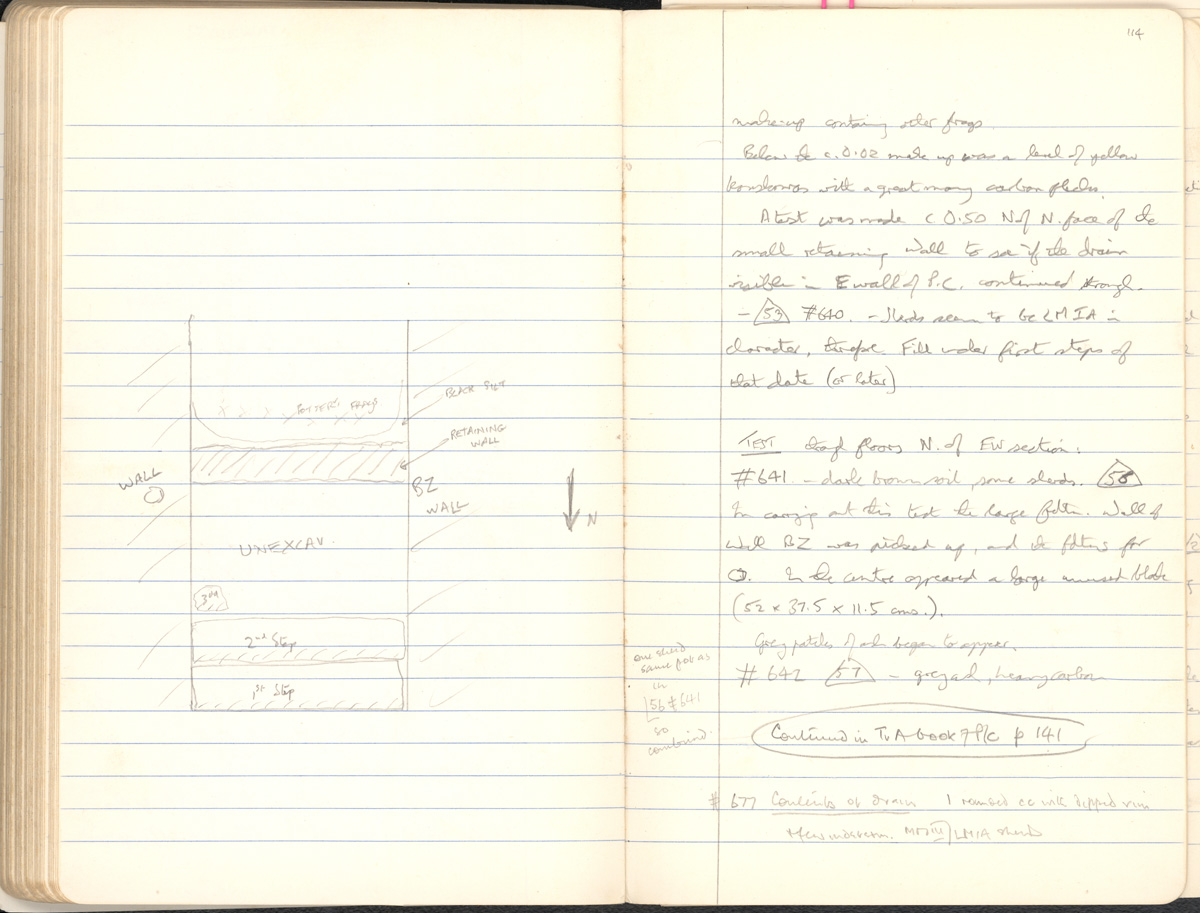 POTTERY FRAGS
BLACK SILT
RETAINING
WALL
WALL
O
BZ
WALL
N
UNEXCAV.
3rd
2nd Step
1st Step
114
make-up containing older frags.
Below the c. 0.02 make up was a level of yellow
kouskouras with a great many carbon flecks.
A test was made c 0.50 N of N. face of the
small retaining wall to see if the drain
visible in E wall of P.C. continued through.
- 53 #640. - Sherds seem to be LM IA in
character, therefore. Fill under first steps of
that date (or later)
TEST through floors N. of EW section.
#641 - dark brown soil, some sherds. 56
In carrying out this test the large fdtn. Wall of
Wall BZ was picked up, and the fdtns for
O. In the centre appeared a large unused block
(52 x 37.5 x 11.5 cms.).
Grey patches of ash began to appear.
# 642 57 - grey ash, heavy carbon
one sherd
same pot as
in
56 #641
so
combined.
Continued in TvA book 7 P/c p 141
# 677 Contents of drain 1 cc with dipped rim
MMIII/LMIA sherds